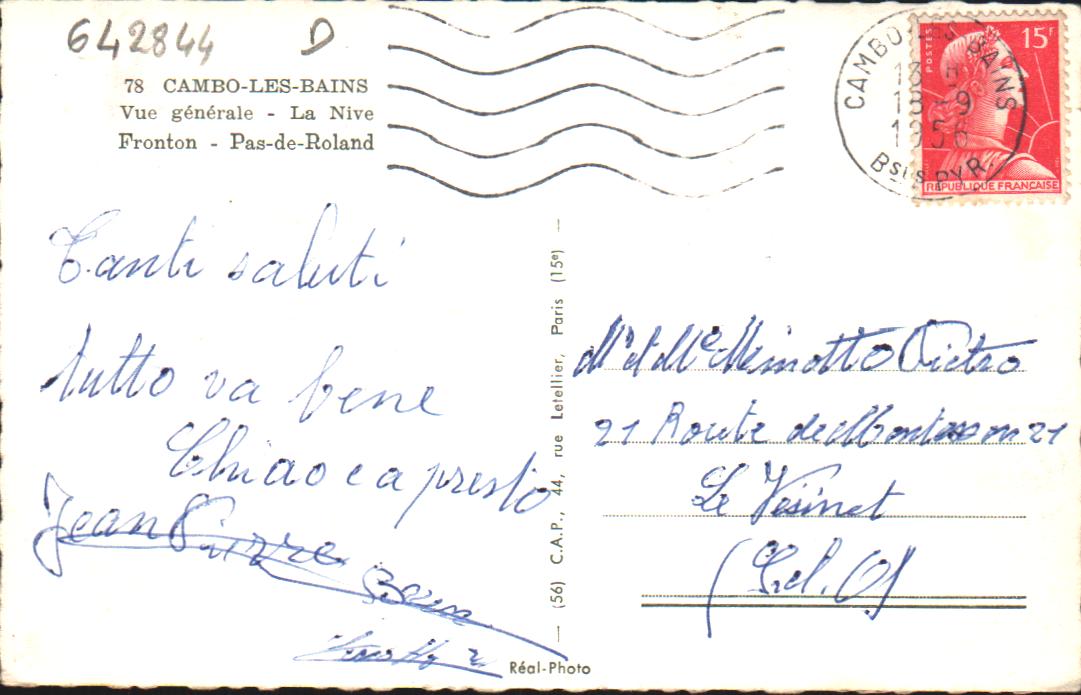 642844 D
78 CAMBO-LES-BAINS
Vue générale - La Nive
Fronton - Pas-de-Roland
CAMBO-LES-BAINS
13 H
13 -9
1956
Bses PYR.
POSTES
15F
REPUBLIQUE FRANÇAISE
Tanti saluti
tutto va bene
Chiao e a presto
Jean Pierre
(56) C.A.P., 44, rue Letellier, Paris (15e)
Réal-Photo
Mr et Me Minotto Pietro
21 Route de Montesson 21
Le Vésinet
(S.et.O)